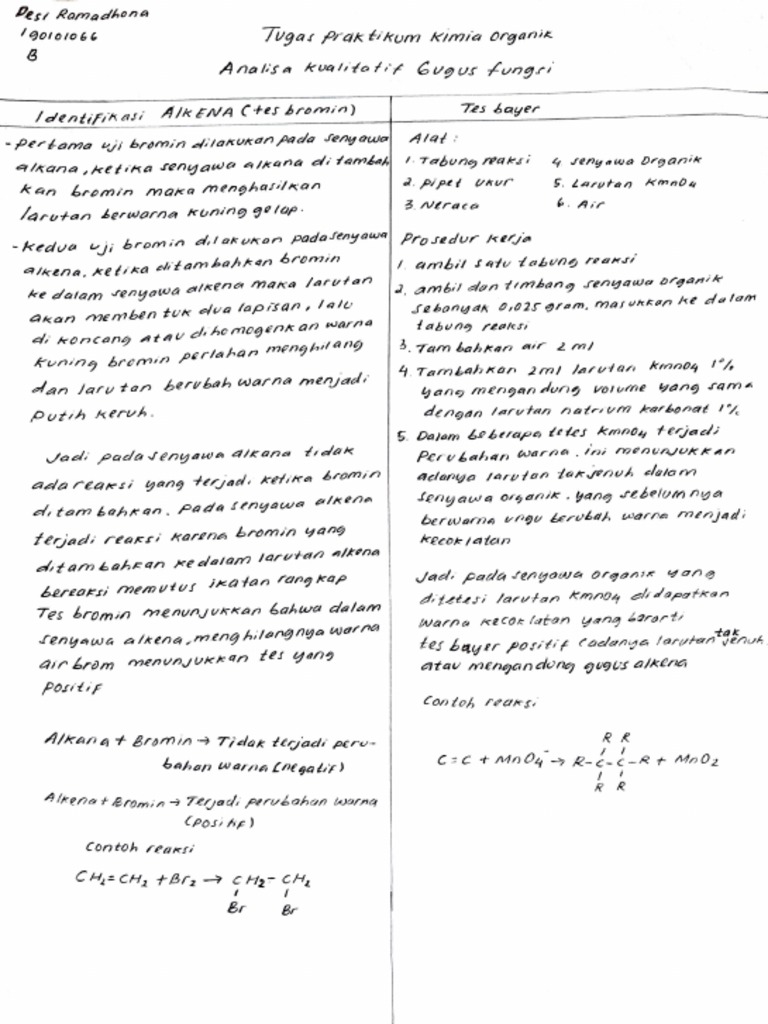 Desi Ramadhona
190101066
B
Tugas praktikum kimia organik
Analisa kualitatif Gugus fungsi
Identifikasi AlKENA (tes bromin)
- pertama uji bromin dilakukan pada senyawa
alkana, ketika senyawa alkana di tambah
kan bromin maka menghasilkan
larutan berwarna kuning gelap.
- kedua uji bromin dilakukan pada senyawa
alkena, ketika ditambahkan bromin
ke dalam senyawa alkena maka larutan
akan membentuk dua lapisan, lalu
di koncang atau dihomogenkan warna
kuning bromin perlahan menghilang
dan larutan berubah warna menjadi
putih keruh.
Jadi pada senyawa alkana tidak
ada reaksi yang terjadi ketika bromin
ditambahkan. pada senyawa alkena
terjadi reaksi karena bromin yang
ditambahkan kedalam larutan alkena
bereaksi memutus ikatan rangkap
Tes bromin menunjukkan bahwa dalam
senyawa alkena, menghilangnya warna
air brom menunjukkan tes yang
positif
Alkana + Bromin → Tidak terjadi peru-
bahan warna (negatif)
Alkena + Bromin → Terjadi perubahan warna
(positif)
Contoh reaksi
CH2=CH2 + Br2 → CH2 - CH2
Br Br
Tes bayer
Alat :
1. Tabung reaksi 4. senyawa Organik
2. pipet ukur 5. Larutan KmnO4
3. Neraca 6. Air
Prosedur kerja
1. ambil satu tabung reaksi
2. ambil dan timbang senyawa organik
sebanyak 0,025 gram, masukkan ke dalam
tabung reaksi
3. Tambahkan air 2 ml
4. Tambahkan 2 ml larutan kmnO4 1%
yang mengandung volume yang sama
dengan larutan natrium karbonat 1%
5. Dalam beberapa tetes KmnO4 terjadi
perubahan warna. ini menunjukkan
adanya larutan tak jenuh dalam
senyawa organik. yang sebelumnya
berwarna ungu berubah warna menjadi
kecoklatan
Jadi pada senyawa organik yang
ditetesi larutan KmnO4 didapatkan
warna kecoklatan yang berarti
tes bayer positif (adanya larutan tak jenuh
atau mengandung gugus alkena
Contoh reaksi
R R
C=C + MnO4- → R-C-C-R + MnO2
R R